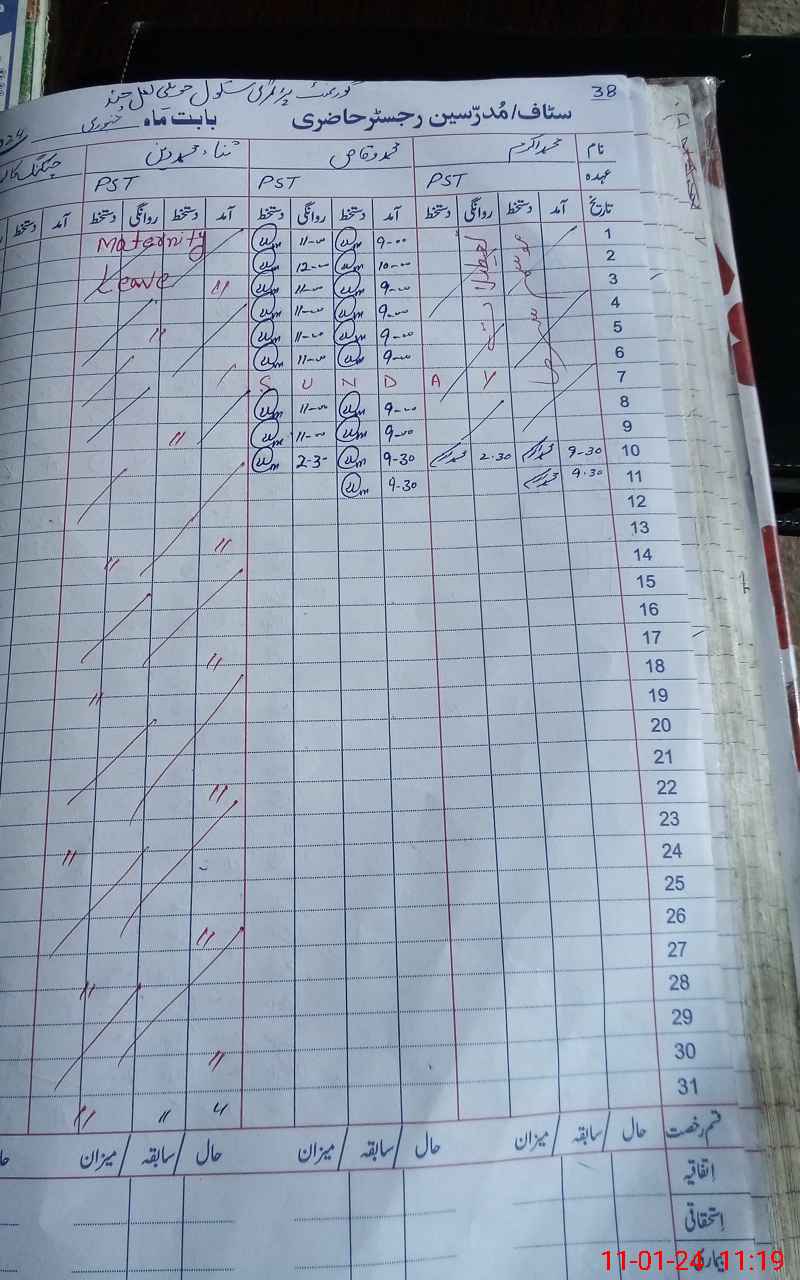 38
گورنمنٹ پرائمری سکول حویلی لعل چند
سٹاف/مُدرّسین رجسٹر حاضری بابت مَاہ جنوری
نام محمد اکرم محمد وقاص ثناء محمد دین
عہدہ PST PST PST
تاریخ آمد دستخط روانگی دستخط آمد دستخط روانگی دستخط آمد دستخط روانگی دستخط آمد
1 9-00 11-00 Maternity
2 10-00 12-00
3 9-00 11-00 Leave "
4 9-00 11-00
5 9-00 11-00 "
6 9-00 11-00
7 S U N D A Y
8 9-00 11-00
9 9-00 11-00 "
10 9-30 2.30 9-30 2-30
11 9.30 9-30
12
13
14 "
15
16
17
18 "
19 "
20
21
22 "
23
24 "
25
26
27 "
28 "
29
30 "
31 " " "
قسم رخصت حال / سابقہ / میزان حال / سابقہ / میزان حال / سابقہ / میزان
اِتفاقیہ
اِستحقاقی
11-01-24 11:19